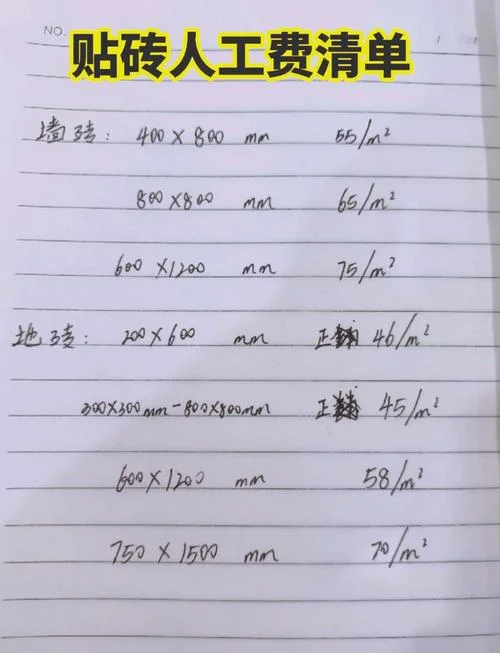 NO.
贴砖人工费清单
墙砖: 400×800 mm 55/m²
800×800 mm 65/m²
600×1200 mm 75/m²
地砖: 200×600 mm 正 46/m²
300×300mm-800×800mm 正 45/m²
600×1200 mm 58/m²
750×1500 mm 70/m²